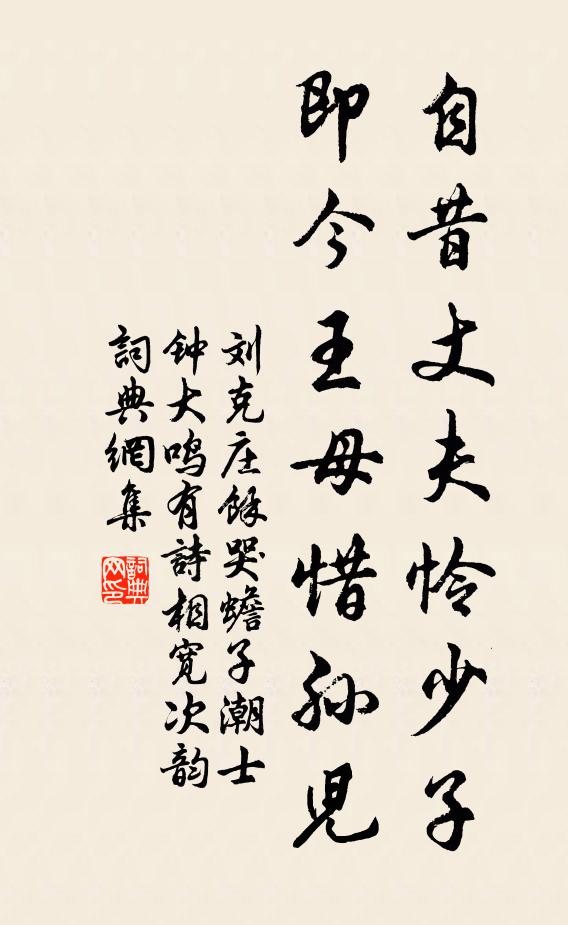 自昔丈夫怜少子
即今王母惜孙児
刘克庄馀哭蟾子潮士
钟大鸣有詩相寬次韵
詞典網集
詞典网印